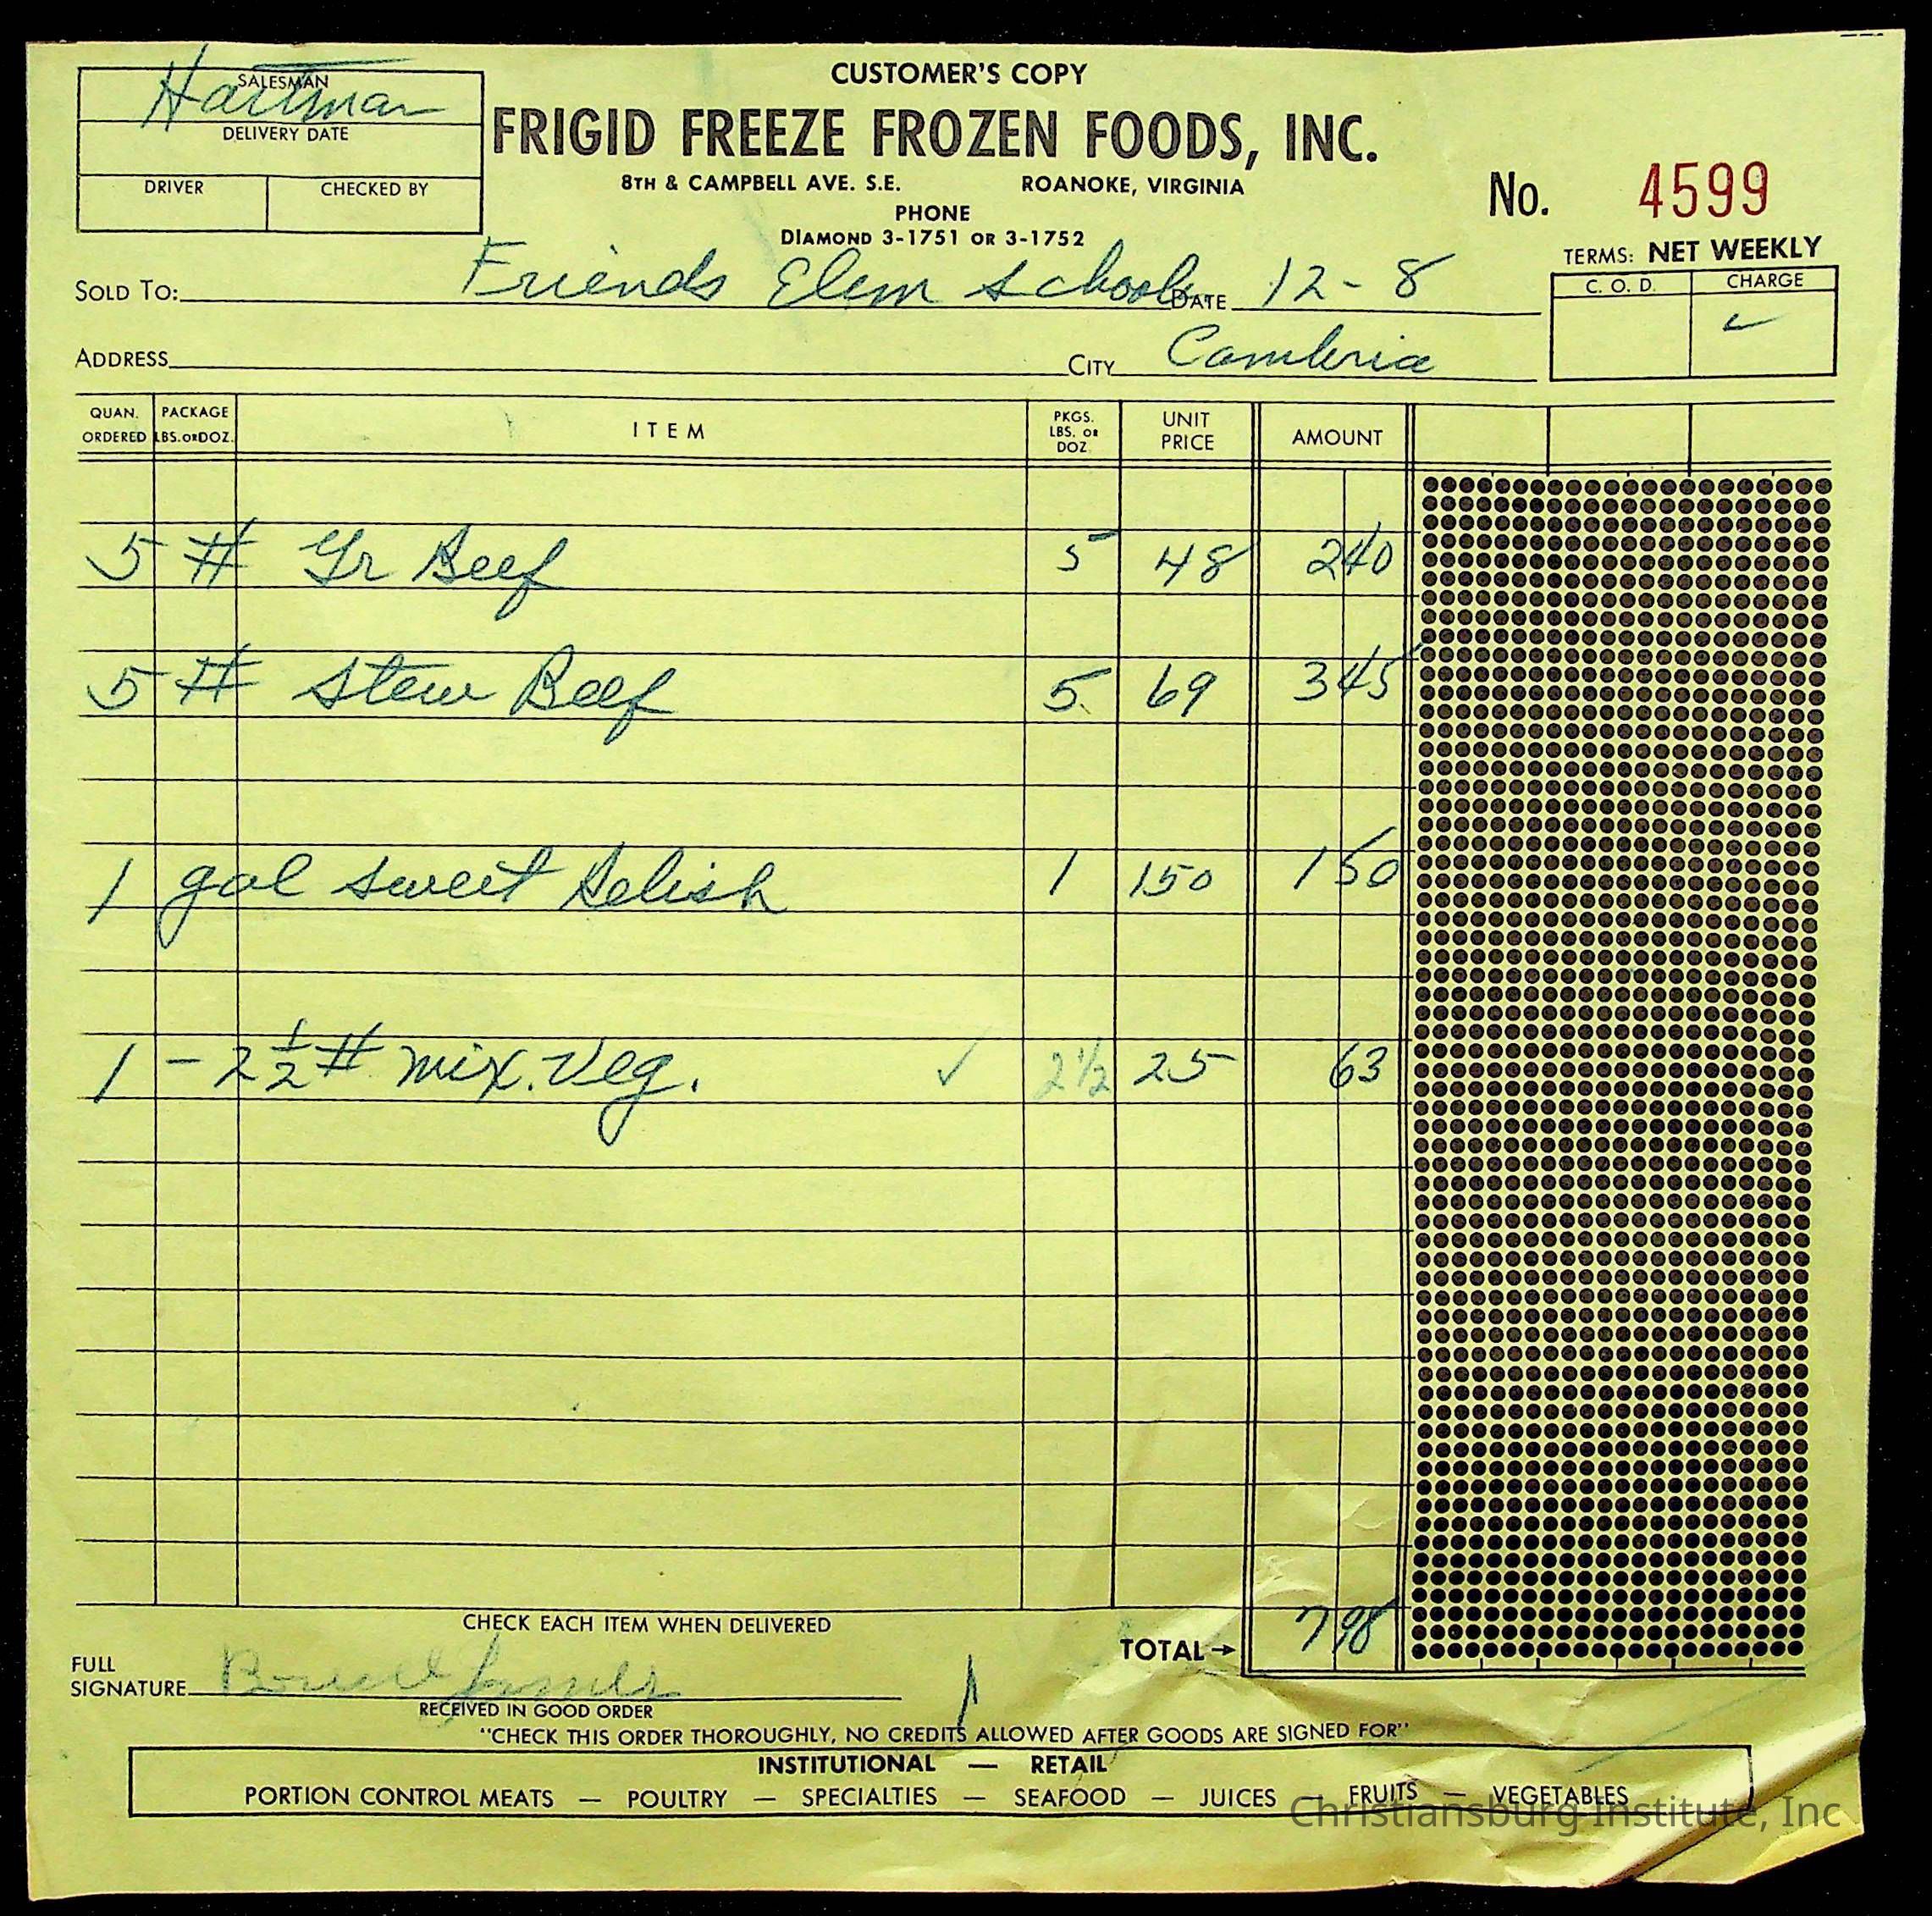 CUSTOMER'S COPY
SALESMAN
Hartman
FRIGID FREEZE FROZEN FOODS, INC.
DELIVERY DATE
8TH & CAMPBELL AVE. S.E. ROANOKE, VIRGINIA
DRIVER CHECKED BY
No. 4599
PHONE
DIAMOND 3-1751 OR 3-1752
TERMS: NET WEEKLY
SOLD TO: Friends Elem School DATE 12-8
C. O. D. CHARGE
✓
ADDRESS CITY Cambria
QUAN. ORDERED PACKAGE LBS. OR DOZ. ITEM PKGS. LBS. OR DOZ. UNIT PRICE AMOUNT
5 # Gr Beef 5 48 240
5 # Stew Beef 5 69 345
1 gal sweet Relish 1 150 150
1 - 2 1/2 # mix. Veg. ✓ 2 1/2 25 63
CHECK EACH ITEM WHEN DELIVERED
TOTAL → 798
FULL SIGNATURE
RECEIVED IN GOOD ORDER
"CHECK THIS ORDER THOROUGHLY, NO CREDITS ALLOWED AFTER GOODS ARE SIGNED FOR"
INSTITUTIONAL — RETAIL
PORTION CONTROL MEATS — POULTRY — SPECIALTIES — SEAFOOD — JUICES FRUITS — VEGETABLES
Christiansburg Institute, Inc